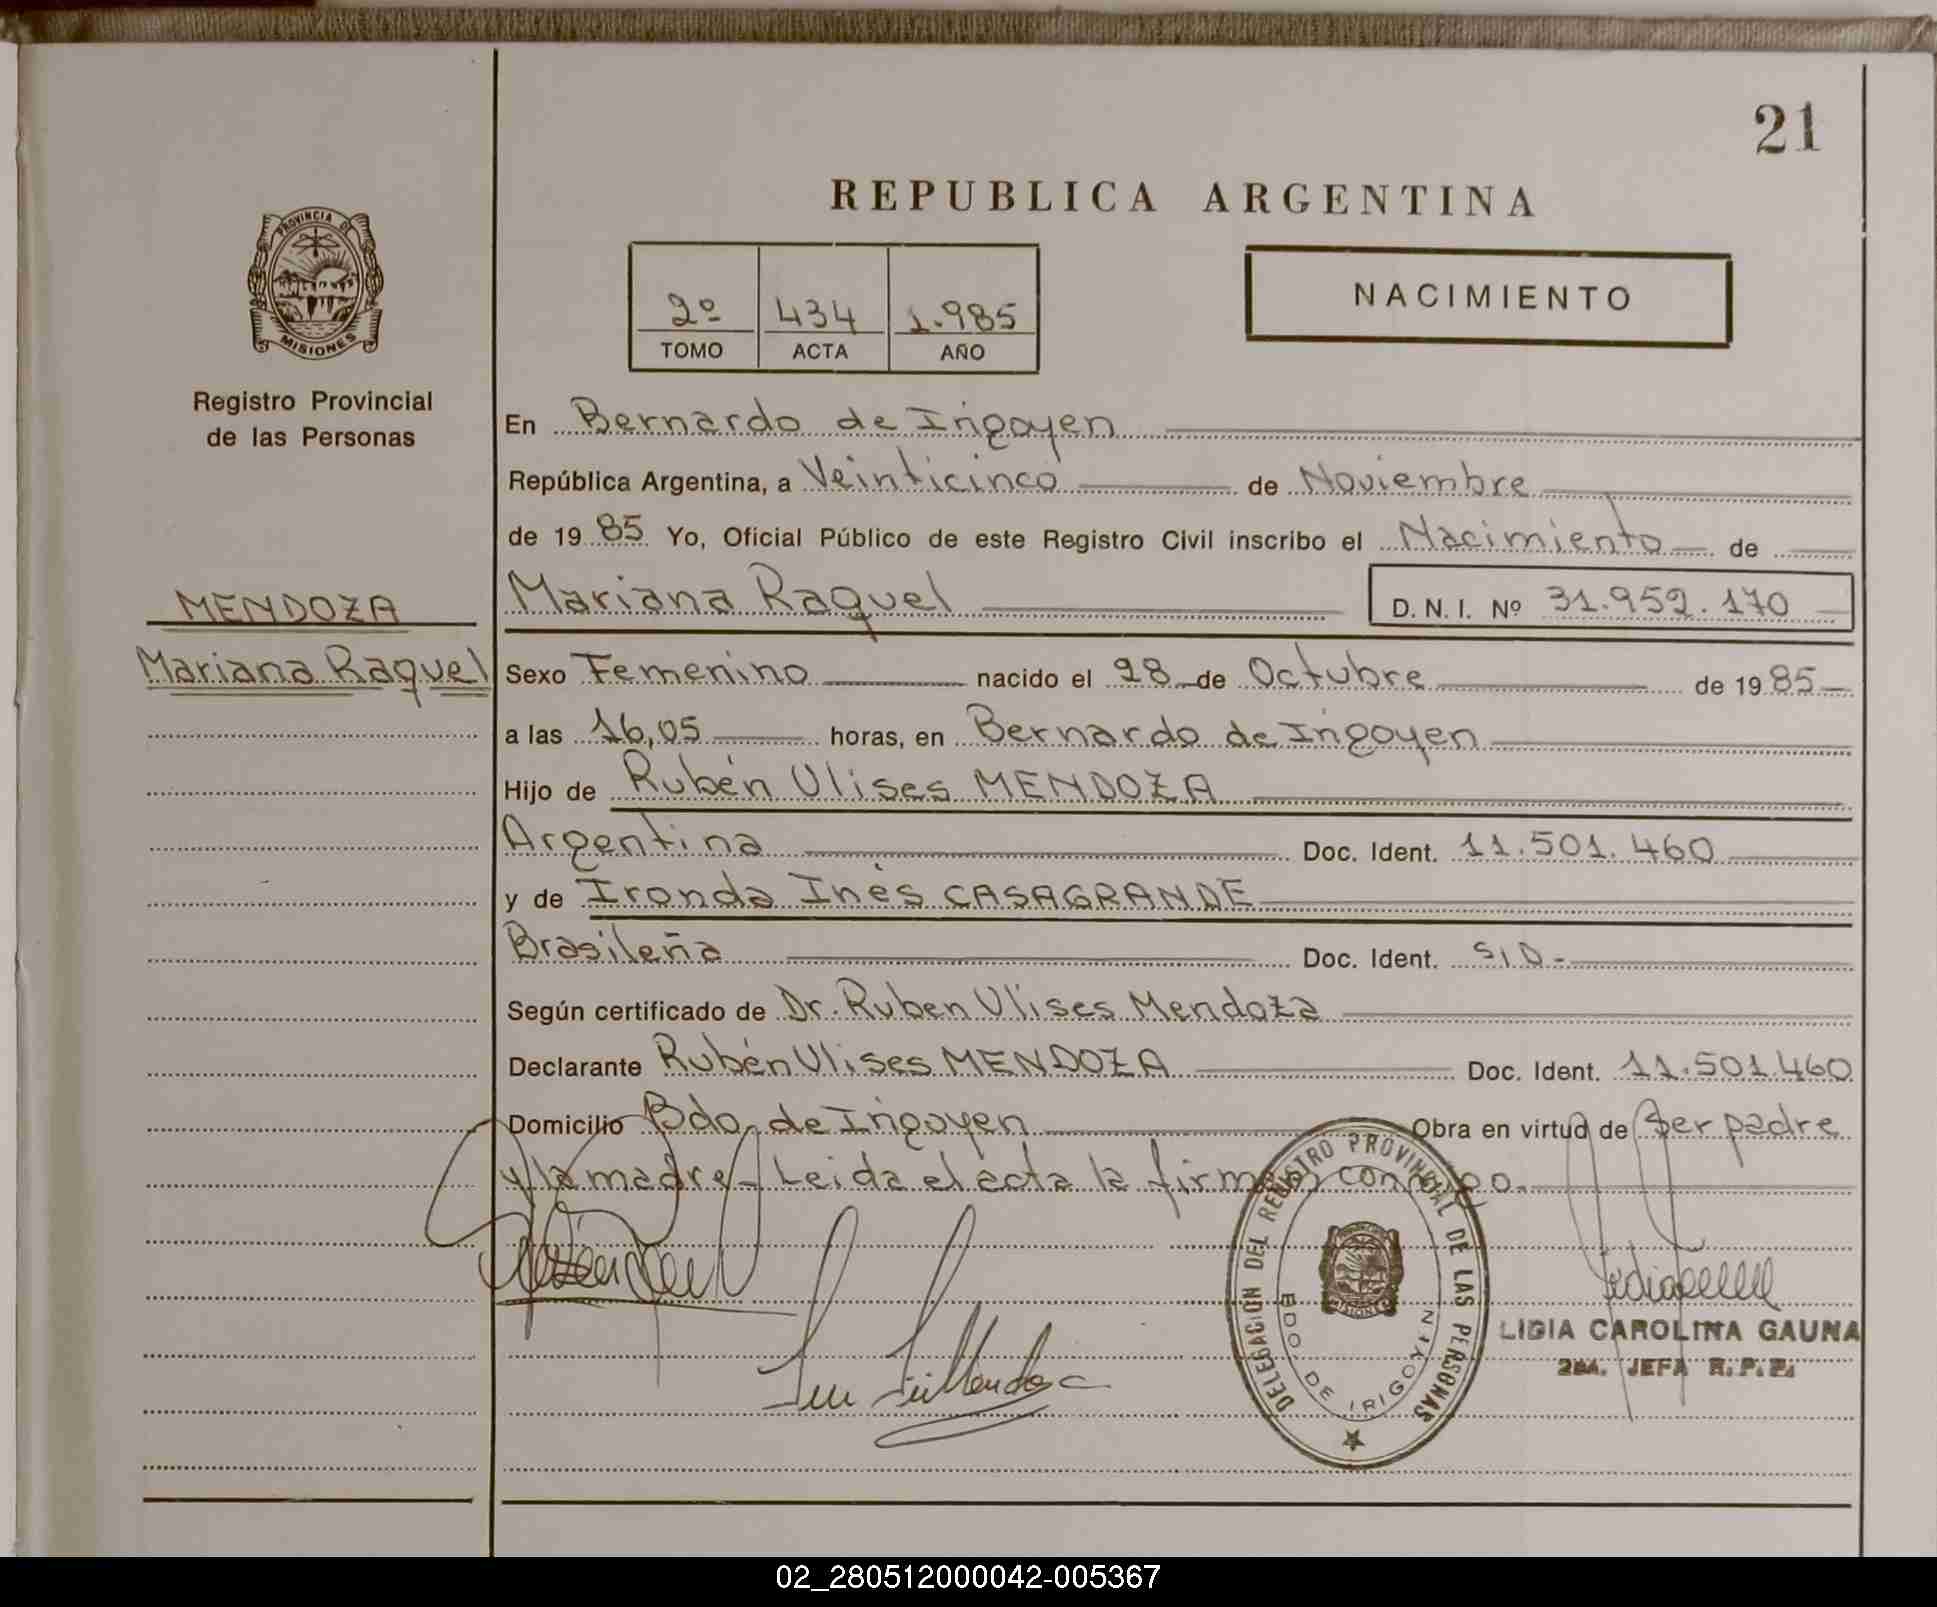 21
REPUBLICA ARGENTINA
PROVINCIA DE
MISIONES
2º 434 1.985
TOMO ACTA AÑO
NACIMIENTO
Registro Provincial
de las Personas
En Bernardo de Irigoyen
República Argentina, a Veinticinco de Noviembre
de 1985 Yo, Oficial Público de este Registro Civil inscribo el Nacimiento de
MENDOZA
Mariana Raquel D. N. I. Nº 31.952.170
Mariana Raquel
Sexo Femenino nacido el 28 de Octubre de 1985
a las 16,05 horas, en Bernardo de Irigoyen
Hijo de Rubén Ulises MENDOZA
Argentina Doc. Ident. 11.501.460
y de Ironda Inés CASAGRANDE
Brasileña Doc. Ident. S/D-
Según certificado de Dr. Ruben Ulises Mendoza
Declarante Rubén Ulises MENDOZA Doc. Ident. 11.501.460
Domicilio Bdo. de Irigoyen Obra en virtud de Ser padre
y la madre - Leida el acta la firman conmigo.
DELEGACION DEL REGISTRO PROVINCIAL DE LAS PERSONAS
BDO DE IRIGOYEN
MISIONES
LIDIA CAROLINA GAUNA
2da. JEFA R.P.P.
02_280512000042-005367